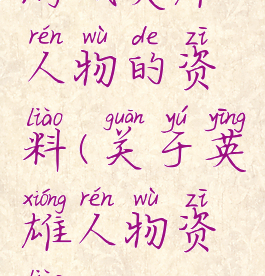 rén wù de zī
人物的资
liào guān yú yīng
料(关于英
xióng rén wù zī
雄人物资